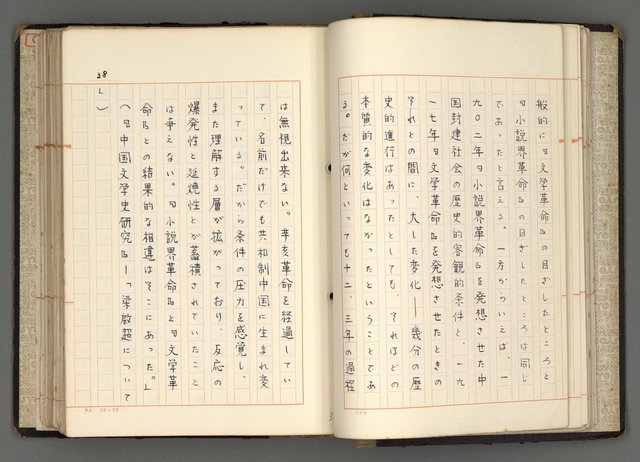 般的に『文学革命』の目ざしたところと
『小説界革命』の目ざしたところは同じ
であったと言える。一方からいえば、一
九〇二年『小説界革命』を発想させた中
国封建社会の歴史的客観的条件と、一九
一七年『文学革命』を発想させたときの
それとの間に、大した変化――幾分の歴
史的進行はあったとしても、それほどの
本質的な変化はなかったということであ
る。だが何といっても十二、三年の過程
は無視出来ない。辛亥革命を経過してい
て、名前だけでも共和制中国に生まれ変
っている。だから条件の圧力を感覚し、
また理解する層が拡がっており、反応の
爆発性と延焼性とが蓄積されていたこと
は争えない。『小説界革命』と『文学革
命』との結果的な相違はそこにあった。」
(『中国文学史研究』―「梁啓超について
」)
38
B4 20×20